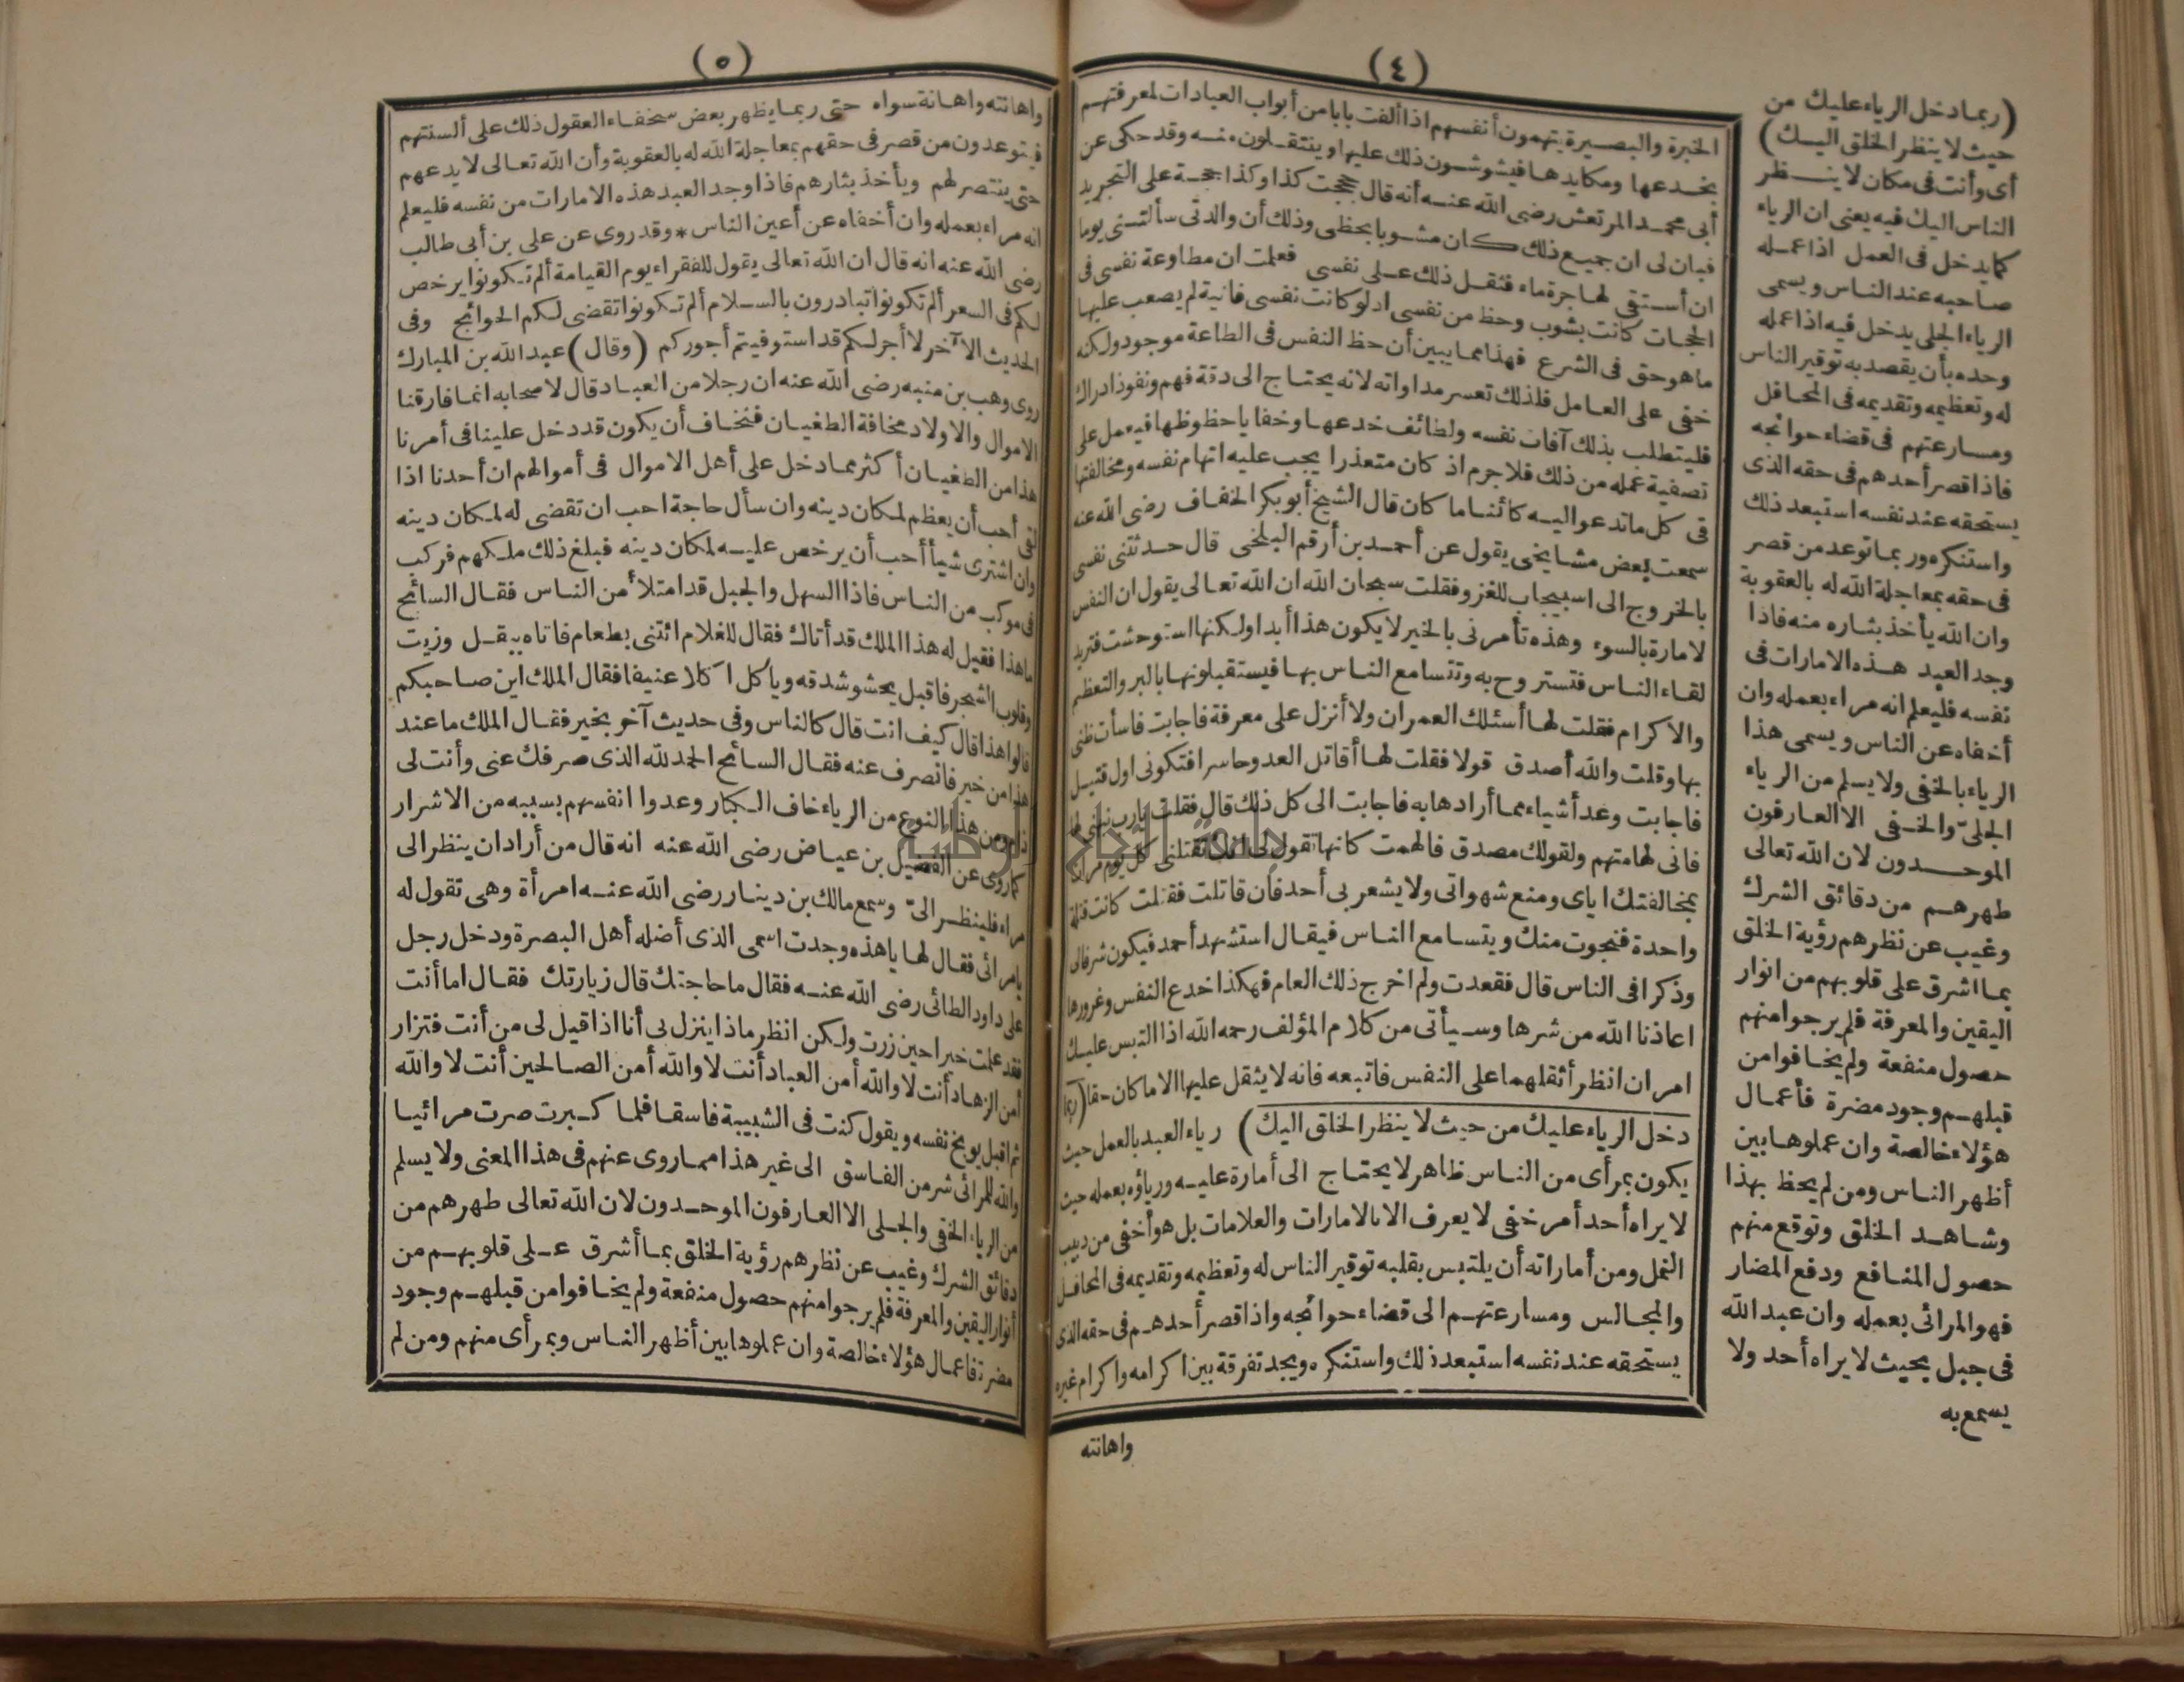 (٤)
الخبرة والبصيرة يتهمون أنفسهم اذا ألفت بابا من أبواب العبادات لمعرفتهم
بخدعها ومكايدها فيشوشون ذلك عليها وينتقلون منه وقد حكى عن
أبى محمد المرتعش رضى الله عنه أنه قال حججت كذا وكذا حجة على التجريد
فبان لى ان جميع ذلك كان مشوبا بحظى وذلك أن والدتى سألتنى يوما
ان أستقى لها جرة ماء فثقل ذلك على نفسى فعلمت ان مطاوعة نفسى فى
الحجات كانت بشوب وحظ من نفسى اذ لو كانت نفسى فانية لم يصعب عليها
ما هو حق فى الشرع فهذا مما يبين أن حظ النفس فى الطاعة موجود ولكنه
خفى على العامل فلذلك تعسر مداواته لانه يحتاج الى دقة فهم ونفوذ ادراك
فليتطلب بذلك آفات نفسه ولطائف خدعها وخفايا حظوظها فيعمل على
تصفية عمله من ذلك فلا جرم اذ كان متعذرا يجب عليه اتهام نفسه ومخالفتها
فى كل ما تدعو اليه كائنا ما كان قال الشيخ أبو بكر الخفاف رضى الله عنه
سمعت بعض مشايخى يقول عن أحمد بن أرقم البلخى قال حدثتنى نفسى
بالخروج الى اسبيجاب للغزو فقلت سبحان الله ان الله تعالى يقول ان النفس
لامارة بالسوء وهذه تأمرنى بالخير لا يكون هذا أبدا ولكنها استوحشت فتريد
لقاء الناس فتستروح به وتتسامع الناس بها فيستقبلونها بالبر والتعظيم
والاكرام فقلت لها أسئلك العمران ولا أنزل على معرفة فاجابت فاسأت ظنى
بها وقلت والله أصدق قولا فقلت لها أقاتل العدو حاسرا فتكونى اول قتيل
فاجابت وعد أشياء مما أرادها به فاجابت الى كل ذلك قال فقلت يارب نبهنى لها
فانى لها متهم ولقولك مصدق فالهمت كانها تقول لى انك تقتلنى كل يوم مرات
بمخالفتك اياى ومنع شهواتى ولا يشعر بى أحد فان قاتلت فقتلت كانت قتلة
واحدة فنجوت منك ويتسامع الناس فيقال استشهد أحمد فيكون شرفا لى
وذكرا فى الناس قال فقعدت ولم اخرج ذلك العام فهكذا خدع النفس وغرورها
اعاذنا الله من شرها وسيأتى من كلام المؤلف رحمه الله اذا التبس عليك
امران انظر أثقلهما على النفس فاتبعه فانه لا يثقل عليها الا ما كان حقا (ربما
دخل الرياء عليك من حيث لا ينظر الخلق اليك) رياء العبد بالعمل حيث
يكون بمرأى من الناس ظاهر لا يحتاج الى أمارة عليه ورياؤه بعمله حيث
لا يراه أحد أمر خفى لا يعرف الا بالامارات والعلامات بل هو أخفى من دبيب
النمل ومن أماراته أن يلتبس بقلبه توقير الناس له وتعظيمه وتقديمه فى المحافل
والمجالس ومسارعتهم الى قضاء حوائجه واذا قصر أحدهم فى حقه الذى
يستحقه عند نفسه استبعد ذلك واستنكره ويجد تفرقة بين اكرامه واكرام غيره
واهانته
(ربما دخل الرياء عليك من
حيث لا ينظر الخلق اليك)
أى وأنت فى مكان لا ينظر
الناس اليك فيه يعنى ان الرياء
كما يدخل فى العمل اذا عمله
صاحبه عند الناس ويسمى
الرياء الجلى يدخل فيه اذا عمله
وحده بأن يقصد به توقير الناس
له وتعظيمه وتقديمه فى المحافل
ومسارعتهم فى قضاء حوائجه
فاذا قصر أحدهم فى حقه الذى
يستحقه عند نفسه استبعد ذلك
واستنكره وربما توعد من قصر
فى حقه بمعاجلة الله له بالعقوبة
وان الله يأخذ بثاره منه فاذا
وجد العبد هذه الامارات فى
نفسه فليعلم انه مراء بعمله وان
أخفاه عن الناس ويسمى هذا
الرياء بالخفى ولا يسلم من الرياء
الجلىّ والخفى الا العارفون
الموحدون لان الله تعالى
طهرهم من دقائق الشرك
وغيب عن نظرهم رؤية الخلق
بما اشرق على قلوبهم من انوار
اليقين والمعرفة فلم يرجوا منهم
حصول منفعة ولم يخافوا من
قبلهم وجود مضرة فأعمال
هؤلاء خالصة وان عملوها بين
أظهر الناس ومن لم يحظ بهذا
وشاهد الخلق وتوقع منهم
حصول المنافع ودفع المضار
فهو المرائى بعمله وان عبد الله
فى جبل بحيث لا يراه أحد ولا
يسمع به
(٥)
واهانته واهانة سواه حتى ربما يظهر بعض سخفاء العقول ذلك على ألسنتهم
فيتوعدون من قصر فى حقهم بمعاجلة الله له بالعقوبة وأن الله تعالى لا يدعهم
حتى ينتصر لهم ويأخذ بثارهم فاذا وجد العبد هذه الامارات من نفسه فليعلم
انه مراء بعمله وان أخفاه عن أعين الناس * وقد روى عن على بن أبى طالب
رضى الله عنه انه قال ان الله تعالى يقول للفقراء يوم القيامة ألم تكونوا يرخص
لكم فى السعر ألم تكونوا تبادرون بالسلام ألم تكونوا تقضى لكم الحوائج وفى
الحديث الآخر لا أجر لكم قد استوفيتم أجوركم (وقال) عبد الله بن المبارك
روى وهب بن منبه رضى الله عنه ان رجلا من العباد قال لاصحابه انما فارقنا
الاموال والاولاد مخافة الطغيان فنخاف أن يكون قد دخل علينا فى أمرنا
هذا من الطغيان أكثر مما دخل على أهل الاموال فى أموالهم ان أحدنا اذا
لقى أحب أن يعظم لمكان دينه وان سأل حاجة احب ان تقضى له لمكان دينه
وان اشترى شيأ أحب أن يرخص عليه لمكان دينه فبلغ ذلك ملكهم فركب
فى موكب من الناس فاذا السهل والجبل قد امتلأ من الناس فقال السائح
ما هذا فقيل له هذا الملك قد أتاك فقال للغلام ائتنى بطعام فاتاه ببقل وزيت
وقلوب الشجر فاقبل يحشو شدقه وياكل اكلا عنيفا فقال الملك اين صاحبكم
قالوا هذا قال كيف انت قال كالناس وفى حديث آخر بخير فقال الملك ما عند
هذا من خير فانصرف عنه فقال السائح الحمد لله الذى صرفك عنى وأنت لى
ذام ومن هذا النوع من الرياء خاف الكبار وعدوا انفسهم بسببه من الاشرار
كما روى عن الفضيل بن عياض رضى الله عنه انه قال من أراد ان ينظر الى
مراء فلينظر الىّ وسمع مالك بن دينار رضى الله عنه امرأة وهى تقول له
يا مرائى فقال لها يا هذه وجدت اسمى الذى أضله أهل البصرة ودخل رجل
على داود الطائى رضى الله عنه فقال ما حاجتك قال زيارتك فقال اما أنت
فقد علمت خيرا حين زرت ولكن انظر ماذا ينزل بى أنا اذا قيل لى من أنت فتزار
أمن الزهاد أنت لا والله أمن العباد أنت لا والله أمن الصالحين أنت لا والله
ثم اقبل يوبخ نفسه ويقول كنت فى الشبيبة فاسقا فلما كبرت صرت مرائيا
والله للمرائى شر من الفاسق الى غير هذا مما روى عنهم فى هذا المعنى ولا يسلم
من الرياء الخفى والجلى الا العارفون الموحدون لان الله تعالى طهرهم من
دقائق الشرك وغيب عن نظرهم رؤية الخلق بما أشرق على قلوبهم من
أنوار اليقين والمعرفة فلم يرجوا منهم حصول منفعة ولم يخافوا من قبلهم وجود
مضرة فاعمال هؤلاء خالصة وان عملوها بين أظهر الناس وبمرأى منهم ومن لم
جامعة النجاح الوطنية